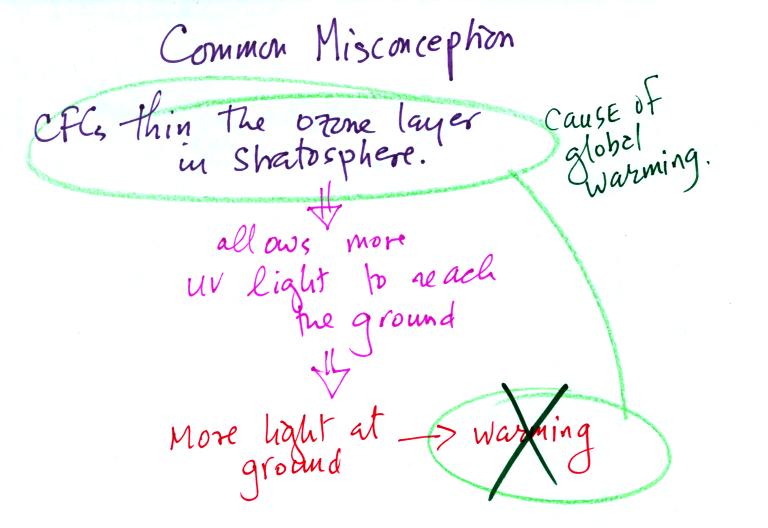 Common Misconception
CFCs thin the ozone layer
in stratosphere.
cause of
global
warming.
allows more
UV light to reach
the ground
More light at
ground
→ warming